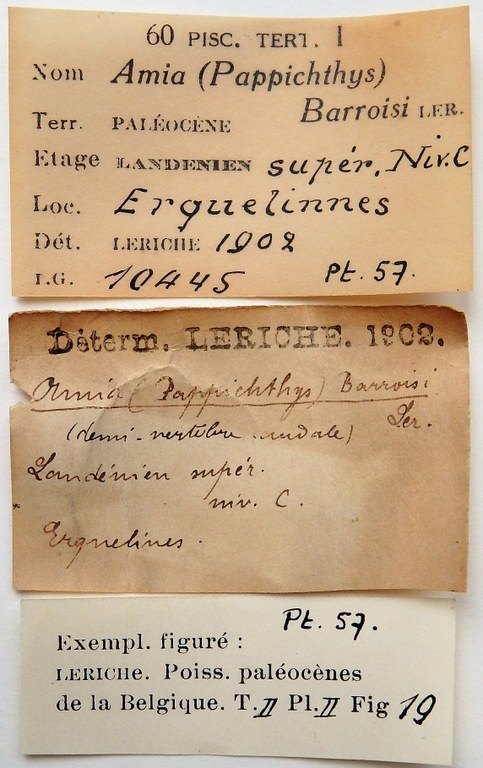 60 PISC. TERT. I
Nom Amia (Pappichthys)
Barroisi LER.
Terr. PALÉOCÈNE
Etage LANDENIEN supér. Niv. C
Loc. Erquelinnes
Dét. LERICHE 1902
I.G. 10445 Pt. 57.
Déterm. LERICHE. 1902.
Amia (Pappichthys) Barroisi
Ler.
(demi-vertèbre caudale)
Landénien supér.
niv. C.
Erquelines.
Pt. 57.
Exempl. figuré :
LERICHe. Poiss. paléocènes
de la Belgique. T. II Pl. II Fig 19